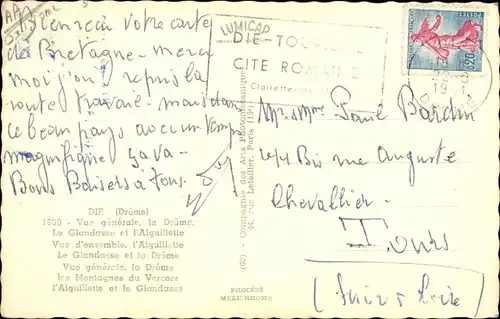 Bien reçu votre carte
de Bretagne - merci
moi j'ai repris la
route travail - mais dans
ce beau pays avec un temps
magnifique ça va -
Bons Baisers a tous.
DIE (Drôme)
1039 - Vue générale, la Drôme,
Le Glandasse et l'Aiguillette
Vue d'ensemble, l'Aiguillette
Le Glandasse et la Drôme
Vue générale, la Drôme
les Montagnes du Vercors
l'Aiguillette et le Glandasse
LUMICAP
(69) - Compagnie des Arts Photomécaniques
44, rue Letellier, Paris (15e)
PROCÉDÉ
MEXICHROME
DIE-TOURISME
CITE ROMAINE
Clairette
0,20
19
Mr & Mme Paul Bardin
44 Bis rue Auguste
Chevallier -
Tours
(Indre & Loire)